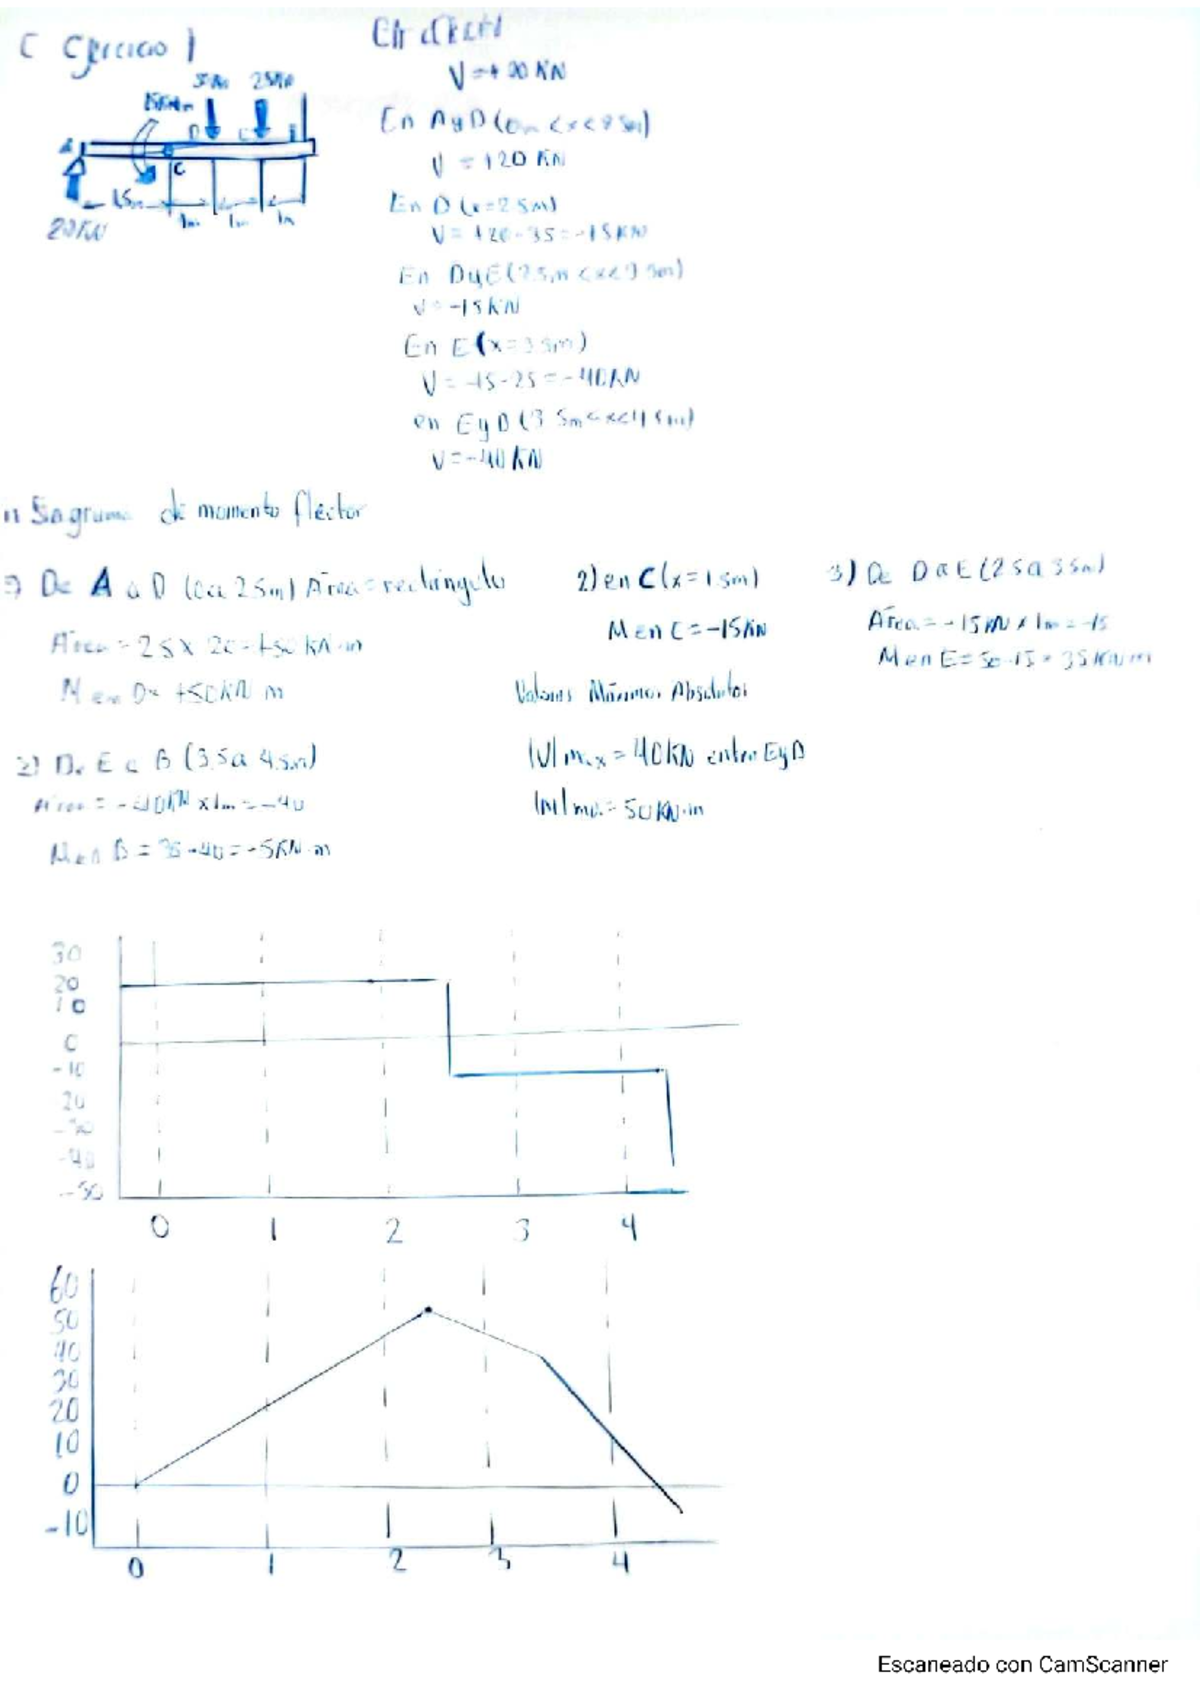 Ejercicio 1
25KN
C
1.5m
1m
1m
1m
20KN
V=+20 KN
En A y D (0m<x<2.5m)
V = +20 KN
En D (x=2.5m)
V= +20-35=-15KN
En D y E (2.5m<x<3.5m)
V=-15KN
En E (x=3.5m)
V=-15-25=-40KN
en E y B (3.5m<x<4.5m)
V=-40KN
Diagrama de momento flector
1) De A a D (0 a 2.5m) Área=rectángulo
Área=2.5x20=+50KN·m
M en D= +50KN m
2) en C (x=1.5m)
M en C=-15KN
3) De D a E (2.5 a 3.5m)
Área=-15KN x 1m=-15
M en E=50-15=35KN m
Valores Máximos Absolutos
|V| max=40KN entre E y B
|M| max=50KN·m
2) De E a B (3.5 a 4.5m)
Área=-40KN x 1m=-40
M en B=35-40=-5KN·m
30
20
10
0
-10
20
-30
-40
-50
0 1 2 3 4
60
50
40
30
20
10
0
-10
0 1 2 3 4
Escaneado con CamScanner